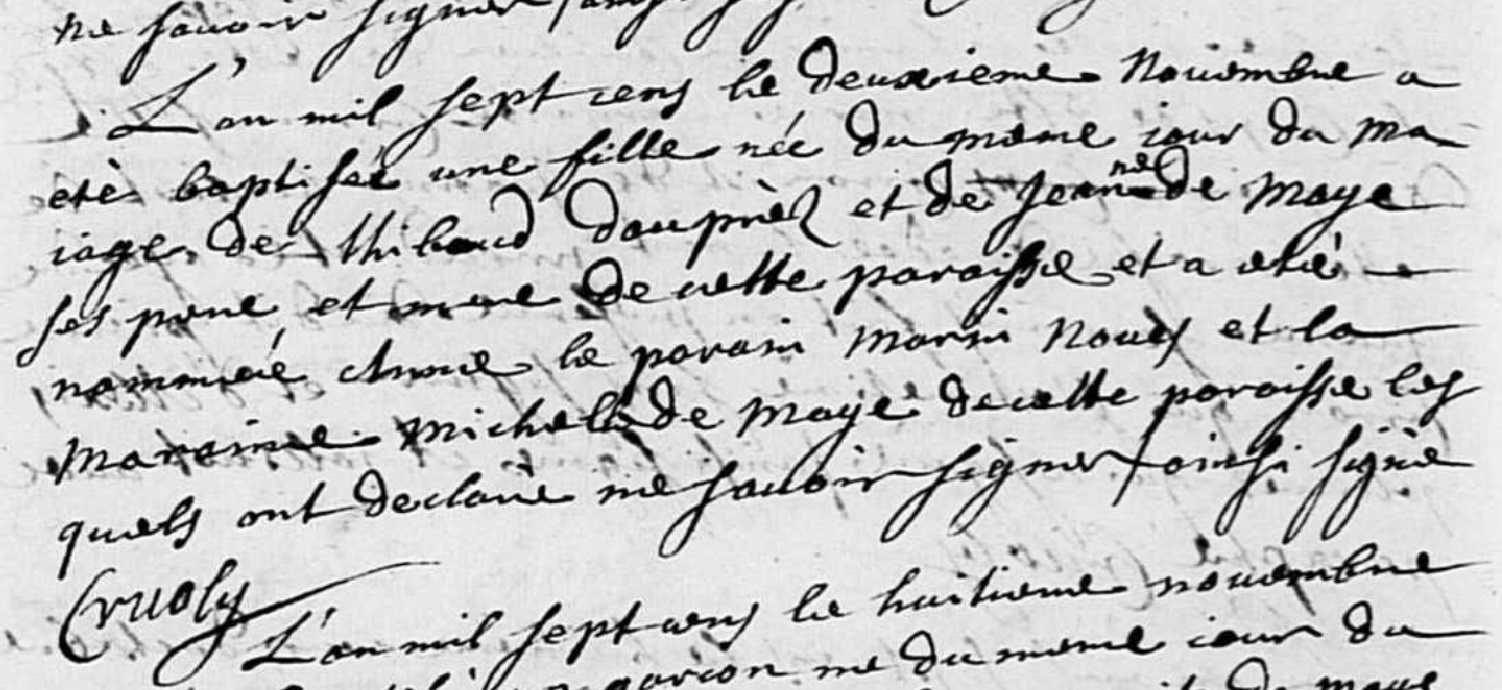 ne savoir signer
L'an mil sept cens le deuxieme Novembre a
eté baptisée une fille née du meme iour du ma
iage de thibaud dauprèz et de Jeanne de Maye
ses pere et mere de cette paroisse et a eté
nommée Anne le parain Marin Noues et la
Maraine Michelle de Maye de cette paroisse les
quels ont declaré ne savoir signer / ainsi signé
Cruoly
L'an mil sept cens le huitieme novembre
garcon né du meme iour du
de maye